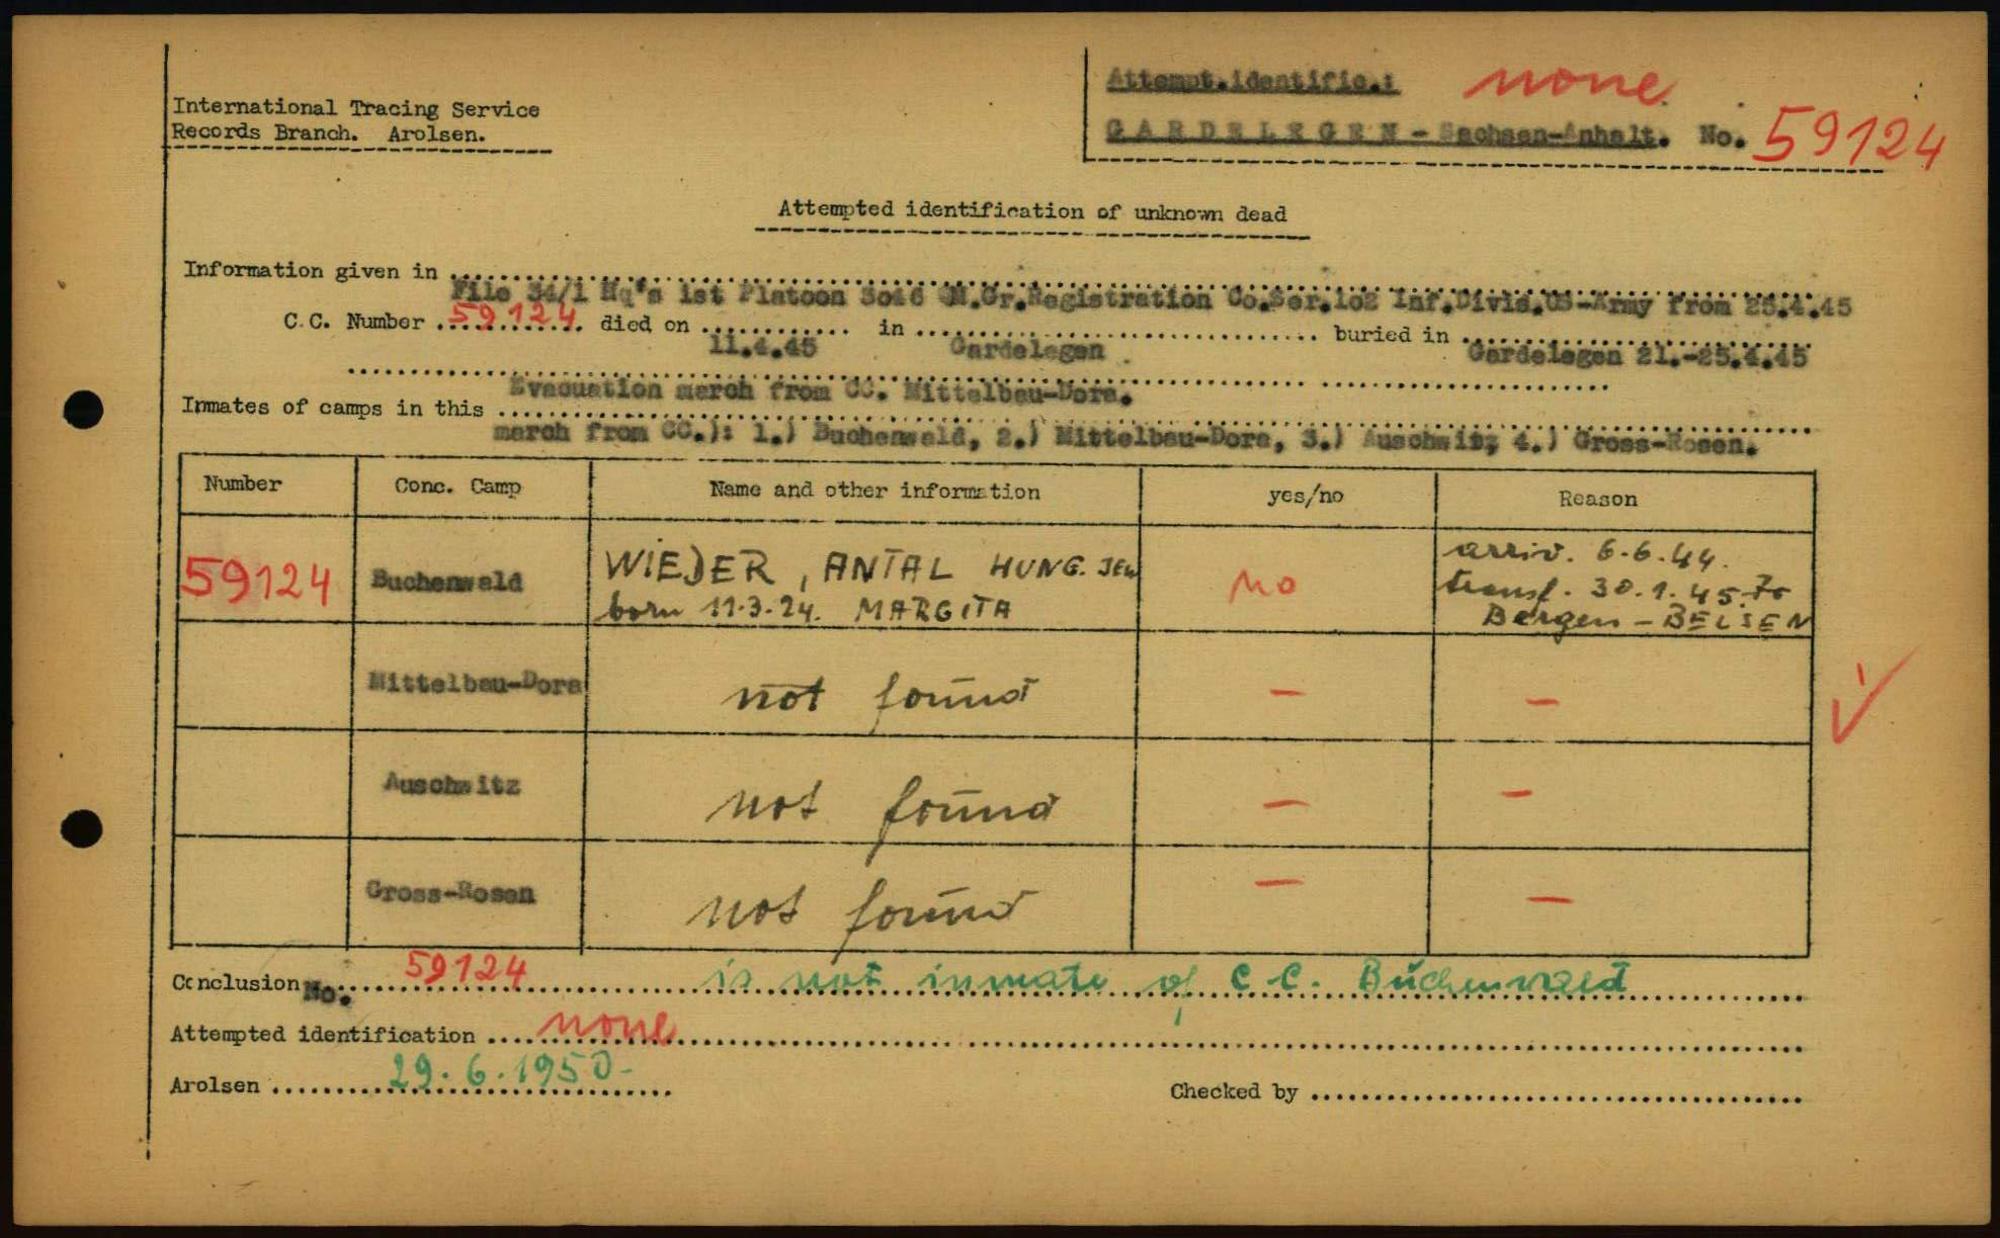 International Tracing Service
Records Branch. Arolsen.
Attempt.identific.: none
GARDELEGEN - Sachsen-Anhalt. No. 59124
Attempted identification of unknown dead
Information given in
File 34/1 Hq's 1st Platoon 3046 QM.Gr.Registration Co.Ser.102 Inf.Divis.US-Army from 25.4.45
C.C. Number 59124 died on 11.4.45 in Gardelegen buried in Gardelegen 21.-25.4.45
Evacuation march from CC. Mittelbau-Dora.
Inmates of camps in this
march from CC.): 1.) Buchenwald, 2.) Mittelbau-Dora, 3.) Auschwitz, 4.) Gross-Rosen.
Number Conc. Camp Name and other information yes/no Reason
59124 Buchenwald WIEDER, ANTAL HUNG. JEW no arriv. 6.6.44.
born 11.3.24. MARGITA transf. 30.1.45. to
Bergen - BELSEN
Mittelbau-Dora not found - -
Auschwitz not found - -
Gross-Rosen not found - -
Conclusion No. 59124 is not inmate of C.C. Buchenwald
Attempted identification none
Arolsen 29.6.1950- Checked by